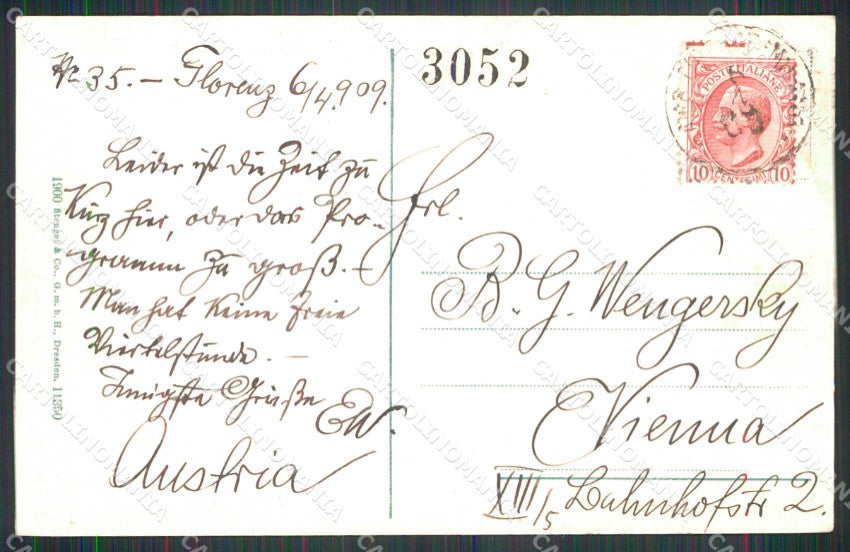 No 35. – Florenz 6/4.909.
Leider ist die Zeit zu
Kurz hier, oder das Pro-
gramm zu groß. –
Man hat keine freie
Viertelstunde. –
Innigste Grüße
EW.
Austria
3052
POSTE ITALIANE
10 CENTESIMI 10
Frl.
B. G. Wengersky
Vienna
XIII/5 Bahnhofstr 2.
1900 Stengel & Co., G. m. b. H., Dresden. 11350
CARTOLINOMANIA